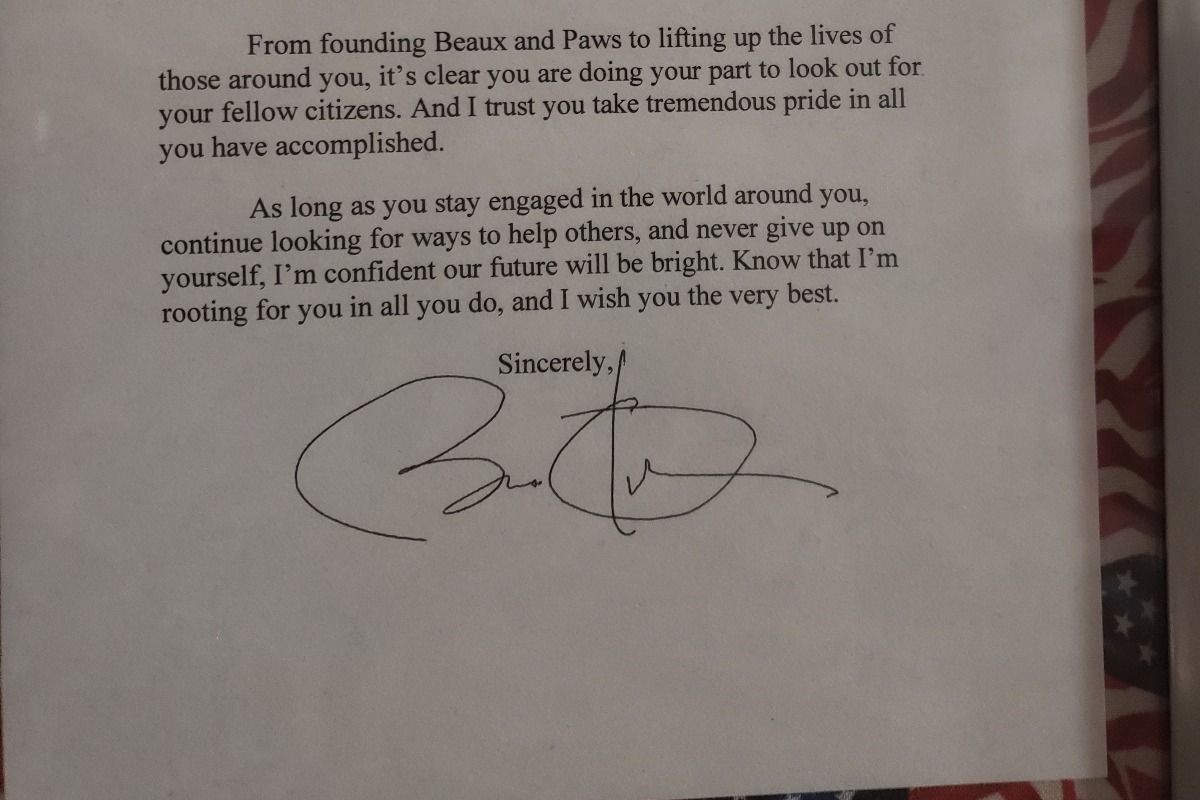 From founding Beaux and Paws to lifting up the lives of
those around you, it's clear you are doing your part to look out for
your fellow citizens. And I trust you take tremendous pride in all
you have accomplished.
As long as you stay engaged in the world around you,
continue looking for ways to help others, and never give up on
yourself, I'm confident our future will be bright. Know that I'm
rooting for you in all you do, and I wish you the very best.
Sincerely,